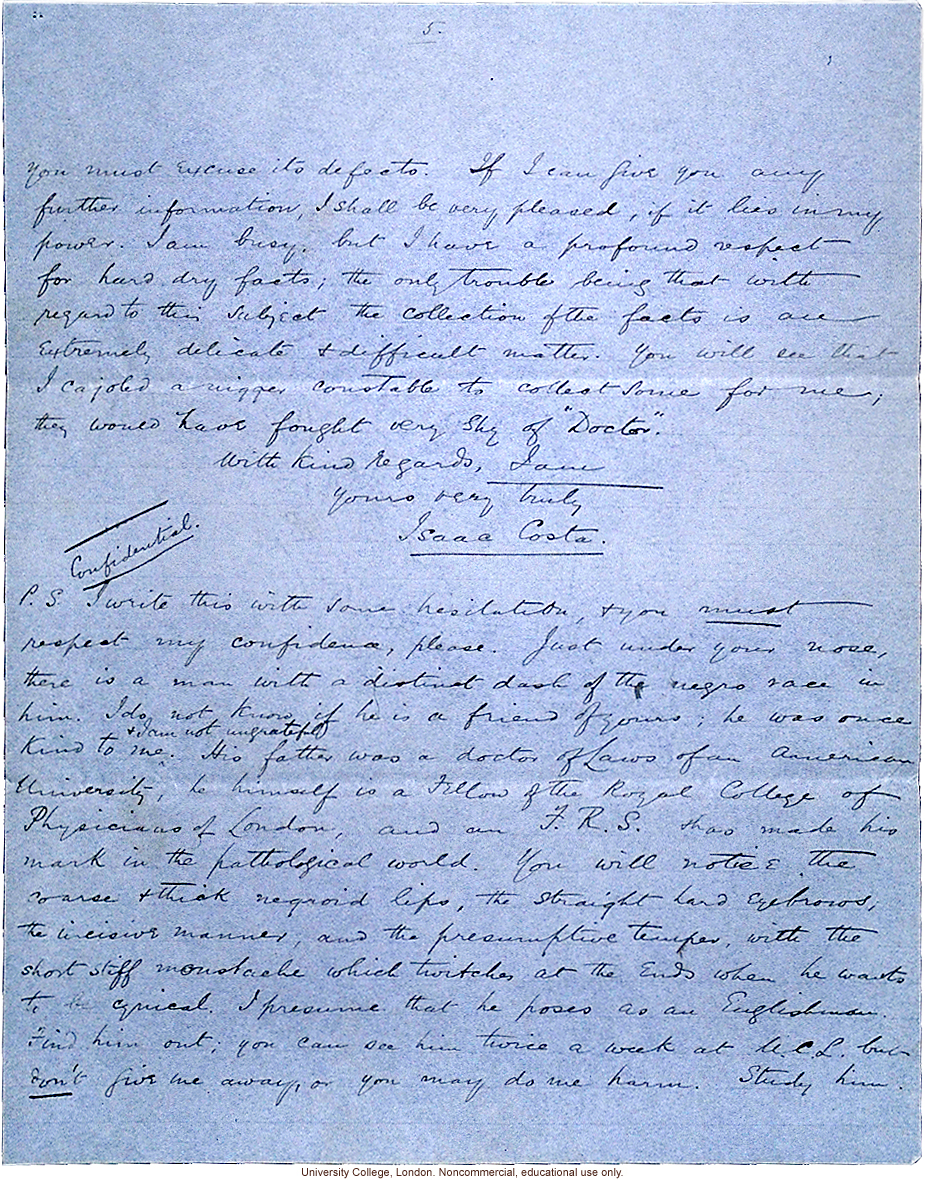 5.
you must excuse its defects. If I can give you any
further information, I shall be very pleased, if it lies in my
power. I am busy, but I have a profound respect
for hard dry facts; the only trouble being that with
regard to this subject the collection of the facts is an
extremely delicate & difficult matter. You will see that
I cajoled a nigger constable to collect some for me;
they would have fought very shy of "Doctor".
With kind regards, I am
yours very truly
Isaac Costa.
Confidential.
P.S. I write this with some hesitation, & you must
respect my confidence, please. Just under your nose,
there is a man with a distinct dash of the negro race in
him. I do not know if he is a friend of yours; he was once
& I am not ungrateful
kind to me. His father was a doctor of Laws of an American
University, he himself is a Fellow of the Royal College of
Physicians of London, and an F.R.S. & has made his
mark in the pathological world. You will notice the
coarse & thick negroid lips, the straight hard eyebrows,
the incisive manner, and the presumptive temper, with the
short stiff moustache which twitches at the ends when he wants
to be cynical. I presume that he poses as an Englishman.
Find him out; you can see him twice a week at U.C.L. but
don't give me away, or you may do me harm. Study him.
University College, London. Noncommercial, educational use only.